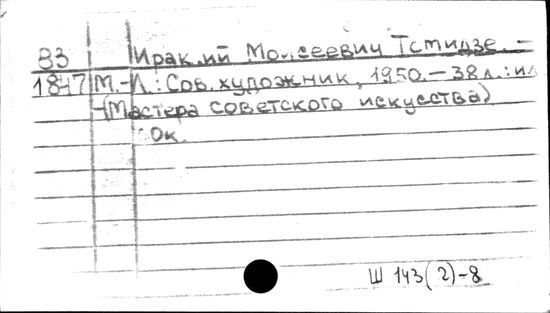 83 Ираклий Моисеевич Тоидзе. -
1847 М.-Л.: Сов. художник, 1950. - 38 л.: ил
-(Мастера советского искусства)
Ок.
Ш 143(2)-8